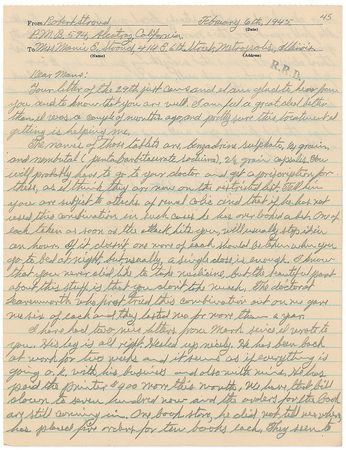 45
From Robert Stroud February 6th, 1945
(Date)
P.M.B. 594, Alcatraz, California
To Mrs Mamie E. Stroud, 414 E. 6th Street, Metropolis, Illinois
(Name) (Address)
R.R.D.
Dear Mama:
Your letter of the 29th just came and I am glad to hear from
you and to know that you are well. I am feeling a great deal better
than I was a couple of months ago, and pretty sure this treatment I am
getting is helping me.
The names of those tablets are, benzedrine sulphate, 1/6 grain,
and nembutal (pentabarbiturate sodium), 3/4 grain capsules. You
will probably have to go to your doctor and get a prescription for
these, as I think they are now on the restricted list. Tell him
you are subject to attacks of renal colic and that if he has not
used this combination in such cases he has overlooked a bet. One of
each taken as soon as the attack hits you, will usually stop it in
an hour. If it doesn't one more of each should be taken when you
go to bed at night, but usually, a single dose is enough. I know
that you never did like to take medicine, but the beautiful part
about this stuff is that you don't take much. The doctor at
Leavenworth who first tried this combination out on me gave
me six of each and they lasted me for more than a year.
I have had two nice letters from Mark since I wrote to
you. His leg is all right. Healed up nicely. He has been back
at work for two weeks and it seems as if everything is
going o.k. with his business and also with mine. He has
paid the printer $900 more this month. We have that bill
down to seven hundred now and the orders for the book
are still coming in. One book store, he did not tell me where,
has placed five orders for ten books each. They seem to